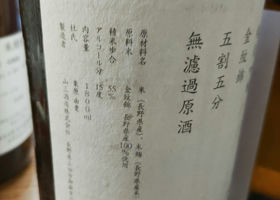 金紋錦
五割五分
無濾過原酒
原材料名 米(長野県産)、米麹(長野県産米
原料米 金紋錦 長野県産100%使用
精米歩合 55%
アルコール分 15度
内容量 1800ml
杜氏 栗原由貴
製造者 山三酒造株式会社